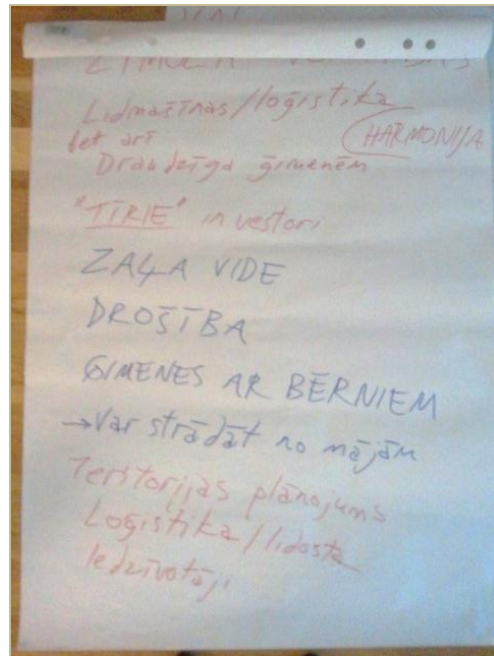 Lidmašīnas/loģistika
bet arī
HARMONIJA
Draudzīga ģimenēm
"TĪRIE" investori
ZAĻA VIDE
DROŠĪBA
ĢIMENES AR BĒRNIEM
→Var strādāt no mājām
Teritorijas plānojums
Loģistika/lidosta
Iedzīvotāji